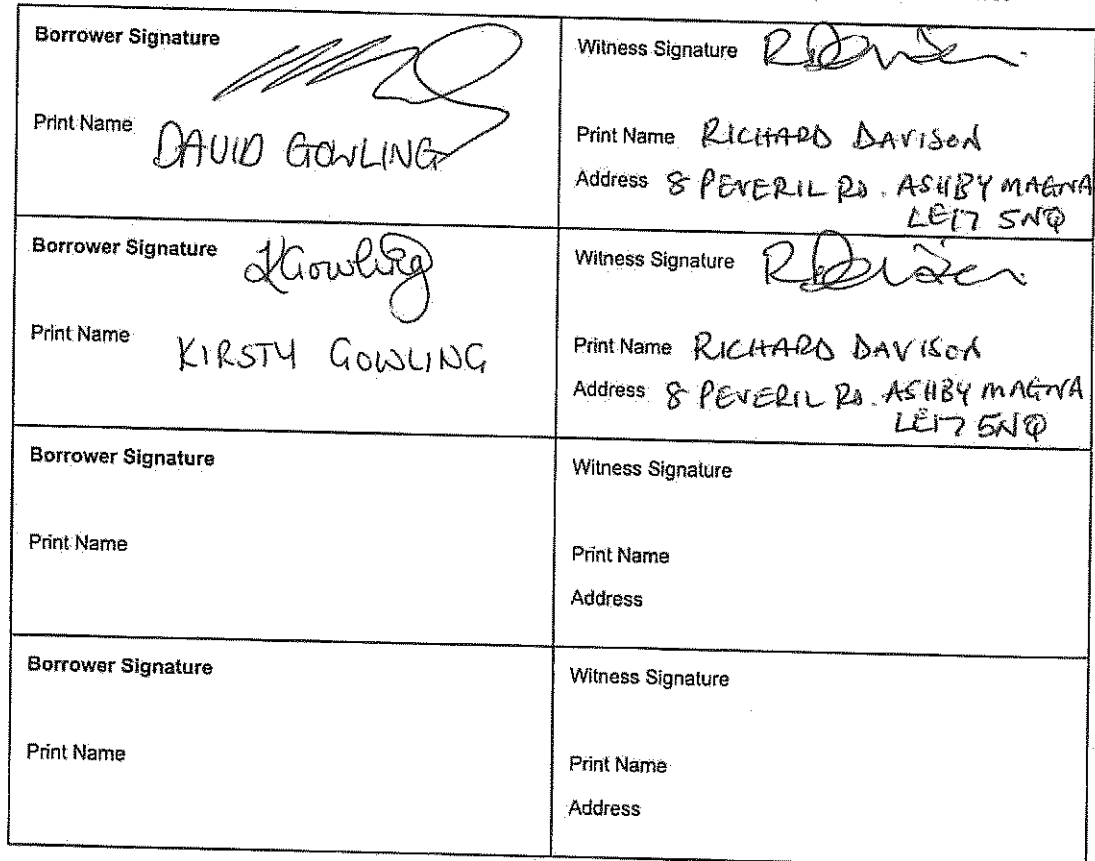 Borrower Signature
Print Name DAVID GOWLING
Witness Signature
Print Name RICHARD DAVISON
Address 8 PEVERIL RD. ASHBY MAGNA
LE17 5NQ
Borrower Signature KGowling
Print Name KIRSTY GOWLING
Witness Signature
Print Name RICHARD DAVISON
Address 8 PEVERIL RD. ASHBY MAGNA
LE17 5NQ
Borrower Signature
Print Name
Witness Signature
Print Name
Address
Borrower Signature
Print Name
Witness Signature
Print Name
Address